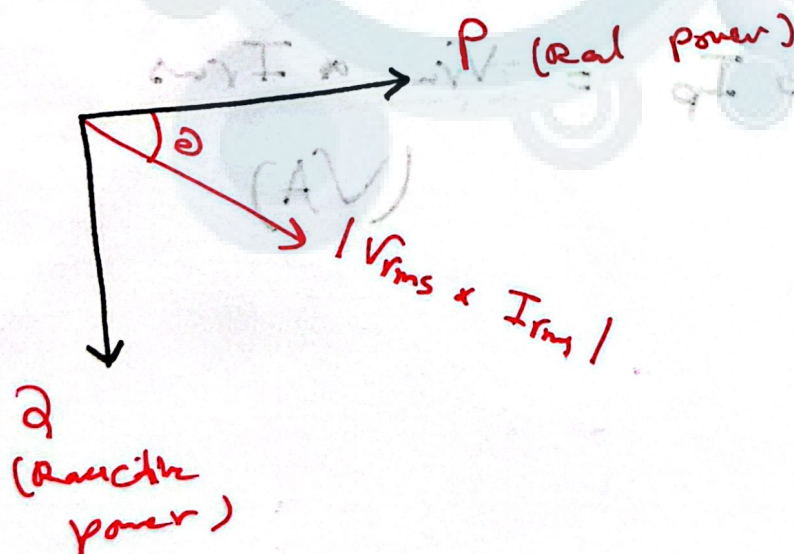 P (Real power)
θ
|Vrms × Irms|
Q
(Reactive
power)